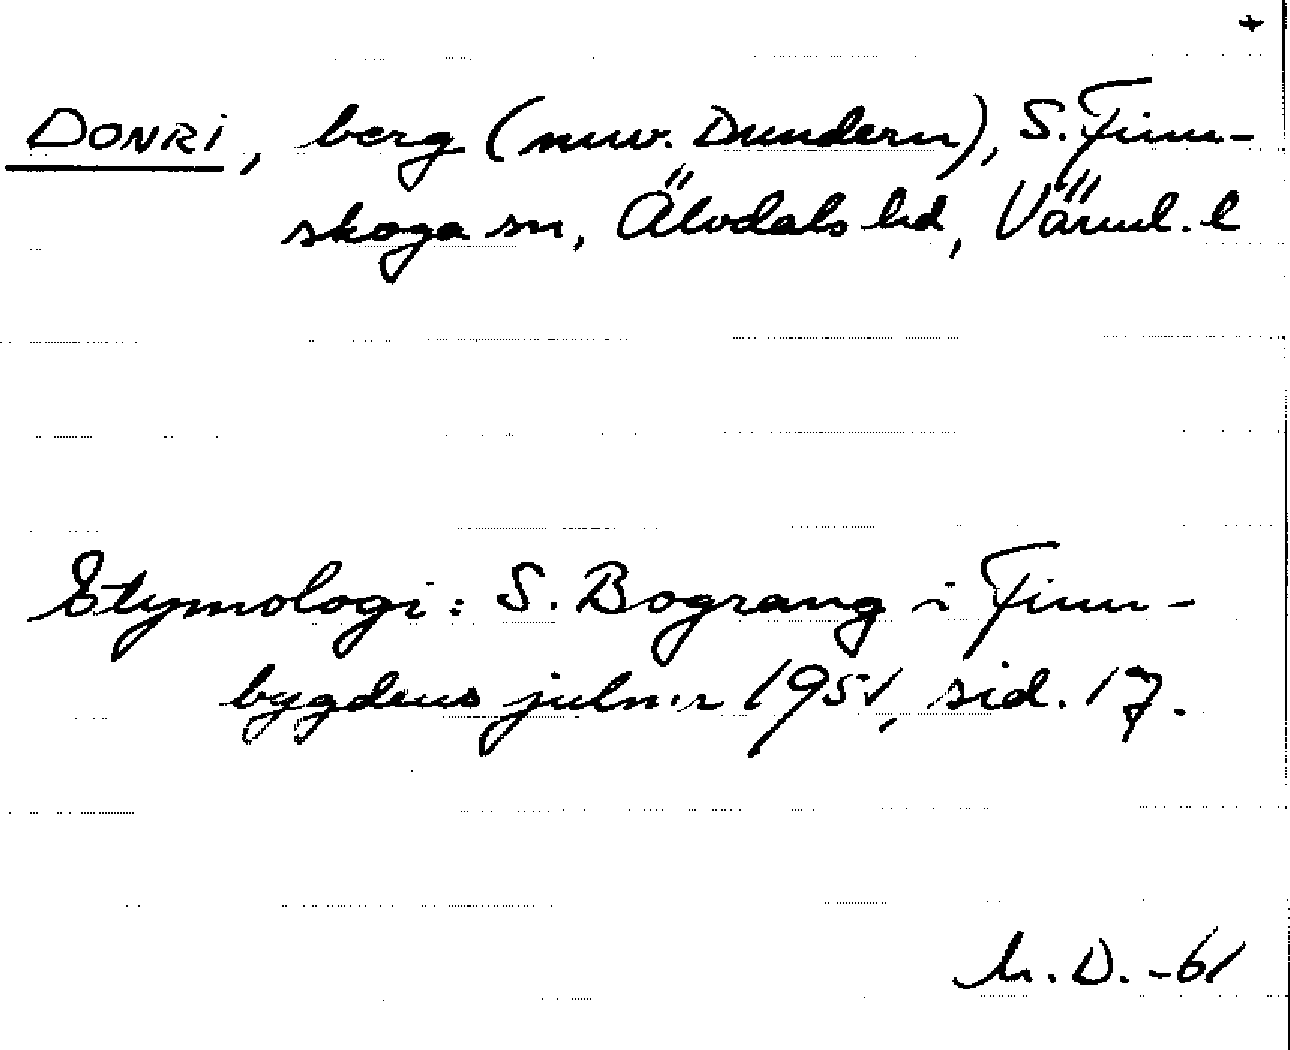 +
DONRI, berg (nuv. Dundern), S. Finn-
skoga sn, Älvdals hd, Värml. l
Etymologi: S. Bograng i Finn-
bygdens julnr 1951, sid. 17.
D. -61